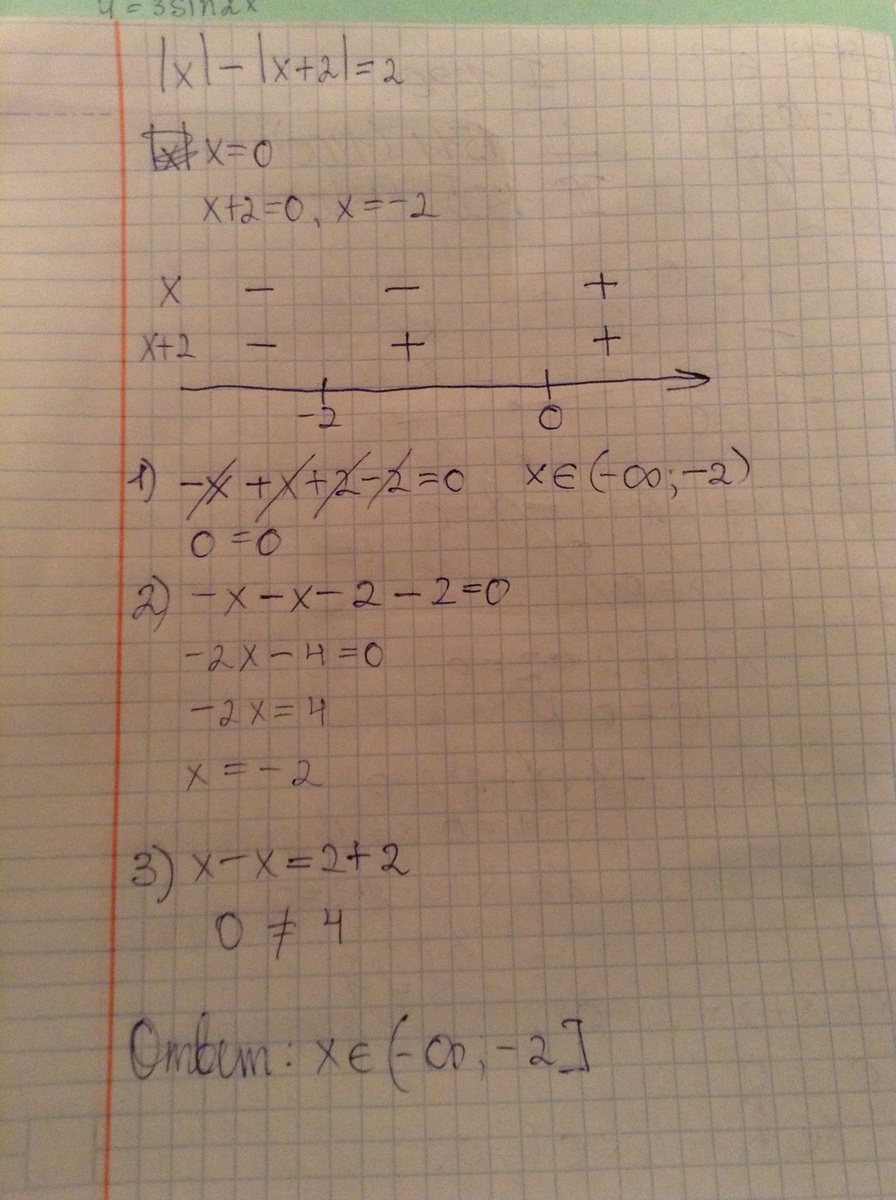 y = 3sin2x
|x| - |x+2| = 2
x=0
x+2=0, x=-2
x - - +
x+2 - + +
-2 0
1) -x + x + 2 - 2 = 0 x∈(-∞; -2)
0 = 0
2) -x - x - 2 - 2 = 0
-2x - 4 = 0
-2x = 4
x = -2
3) x - x = 2 + 2
0 ≠ 4
Ответ: x∈(-∞; -2]